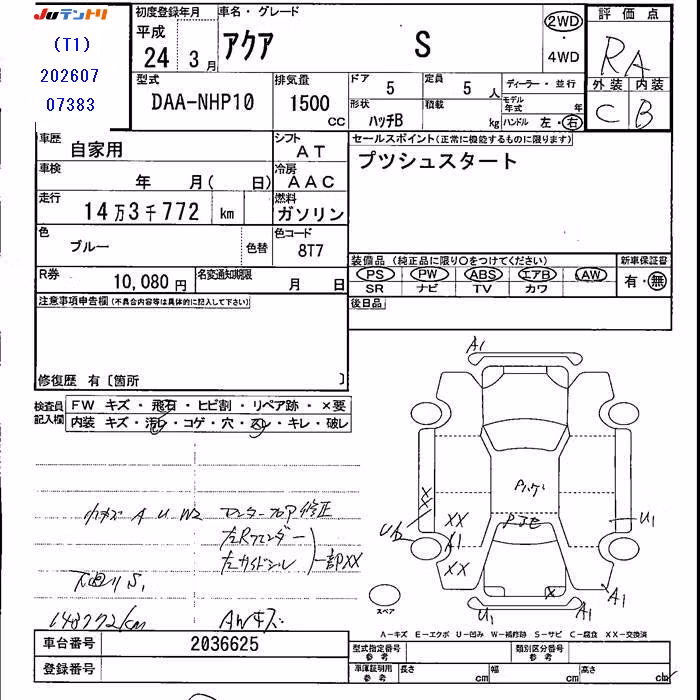 JUテントリ
(T1)
202607
07383
初度登録年月
平成
24 3月
車名・グレード
アクア S
2WD
・
4WD
評価点
RA
外装 内装
C B
型式
DAA-NHP10
排気量
1500
CC
ドア
5
定員
5人
ディーラー・並行
形状
ハッチB
積載
kg
モデル年式
年
ハンドル 左・右
車歴
自家用
シフト
AT
セールスポイント(正常に機能するものに限ります)
プツシュスタート
車検
年 月( 日)
冷房
AAC
走行
14万3千772 km
燃料
ガソリン
色
ブルー
色替
色コード
8T7
装備品 (純正品に限り○をつけてください)
新車保証書
PS PW ABS エアB AW
SR ナビ TV カワ
有・無
R券
10,080円
名変通知期限
月 日
後日品
注意事項申告欄(不具合内容等は具体的に記入して下さい)
修復歴 有〔箇所 〕
検査員記入欄
FW キズ・飛石・ヒビ割・リペア跡・×要
内装 キズ・汚れ・コゲ・穴・スレ・キレ・破レ
小キズ A U W2
センターフロア修正
左Rフェンダー
左サイドシル
一部XX
下廻り S1
143772km
AWキズ
A1
X
XX
A1
XX
U1
A1
X
U1
A1
スペア
A-キズ E-エクボ U-凹み W-補修跡 S-サビ C-腐食 XX-交換済
車台番号
2036625
登録番号
型式指定番号
参考
類別区分番号
参考
車庫証明用
参考
長さ cm 幅 cm 高さ cm